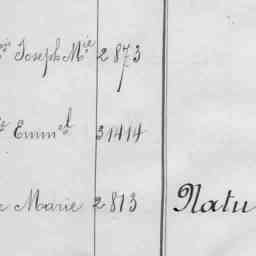 Joseph Mie 2 873
Emmel 31414
Marie 2 813 Natu